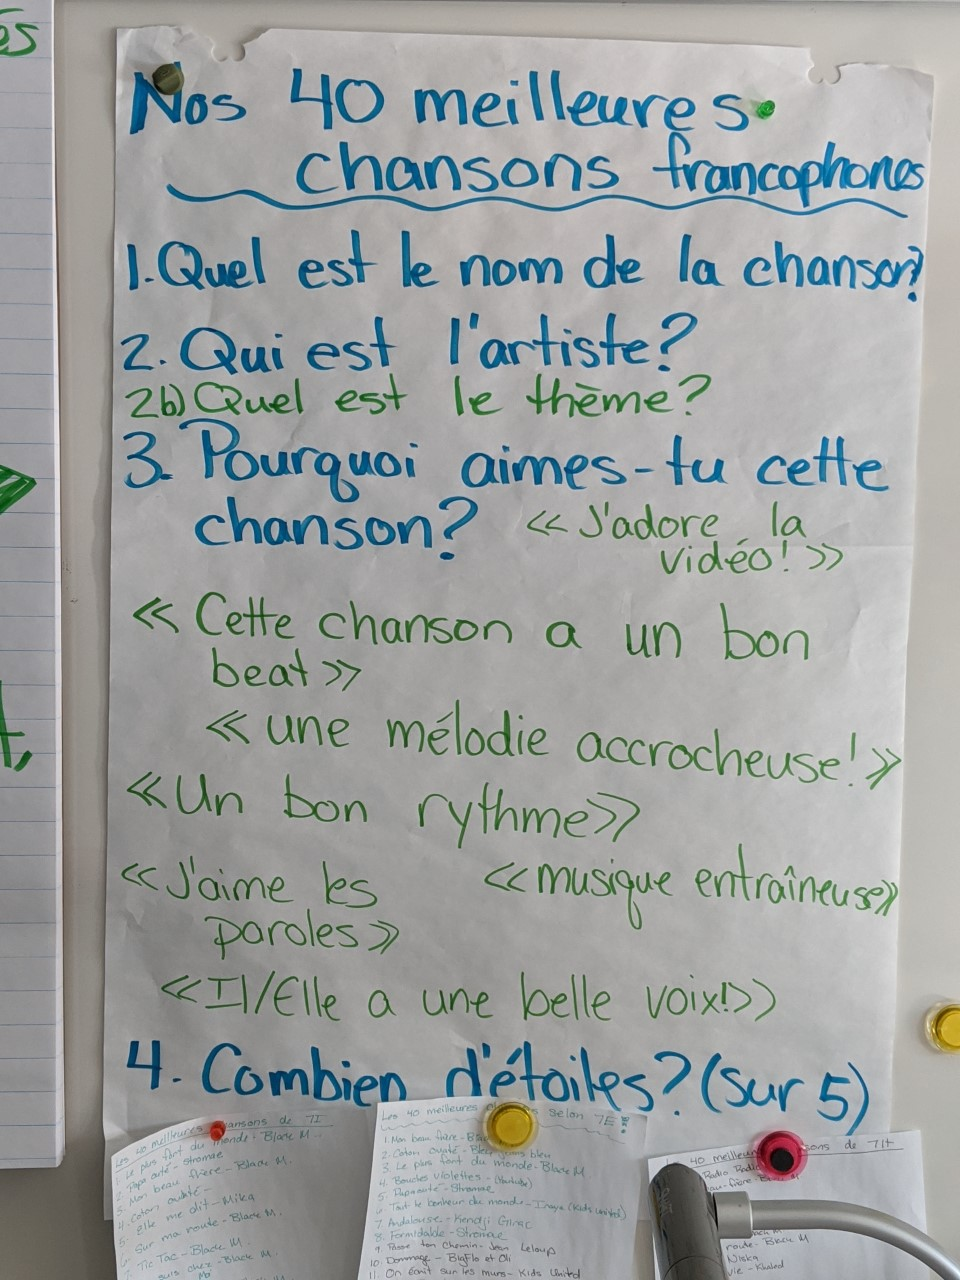 Nos 40 meilleures
chansons francophones
1. Quel est le nom de la chanson?
2. Qui est l'artiste?
2b) Quel est le thème?
3. Pourquoi aimes-tu cette
chanson? << J'adore la
vidéo! >>
<< Cette chanson a un bon
beat >>
<< une mélodie accrocheuse! >>
<< Un bon rythme >>
<< J'aime les
paroles >>
<< musique entraîneuse >>
<< Il/Elle a une belle voix! >>
4. Combien d'étoiles? (sur 5)
Les 40 meilleures chansons de 7I
1. Le plus fort du monde - Black M.
2. Papaoutai - Stromae
3. Mon beau frère - Black M.
4. Coton ouaté -
5. Elle me dit - Mika
6. Sur ma route - Black M.
7. Tic Tac - Black M.
suis chez - Black M.
Moi
Les 40 meilleures selon 7E
1. Mon beau frère - Bla
2. Coton ouaté - Bleu Jeans bleu
3. Le plus fort du monde - Black M.
4. Boucles violettes - (Youtube)
5. Papaoutai - Stromae
6. Tout le bonheur du monde - Inaya (Kids United)
7. Andalouse - Kendji Girac
8. Formidable - Stromae
9. Passe ton Chemin - Jean Leloup
10. Dommage - Bigflo et Oli
11. On écrit sur les murs - Kids United
40 meilleur sons de 7H
Radio Radio
eau-frère
Black M
route - Black M
Niska
vie - Khaled
es
t,